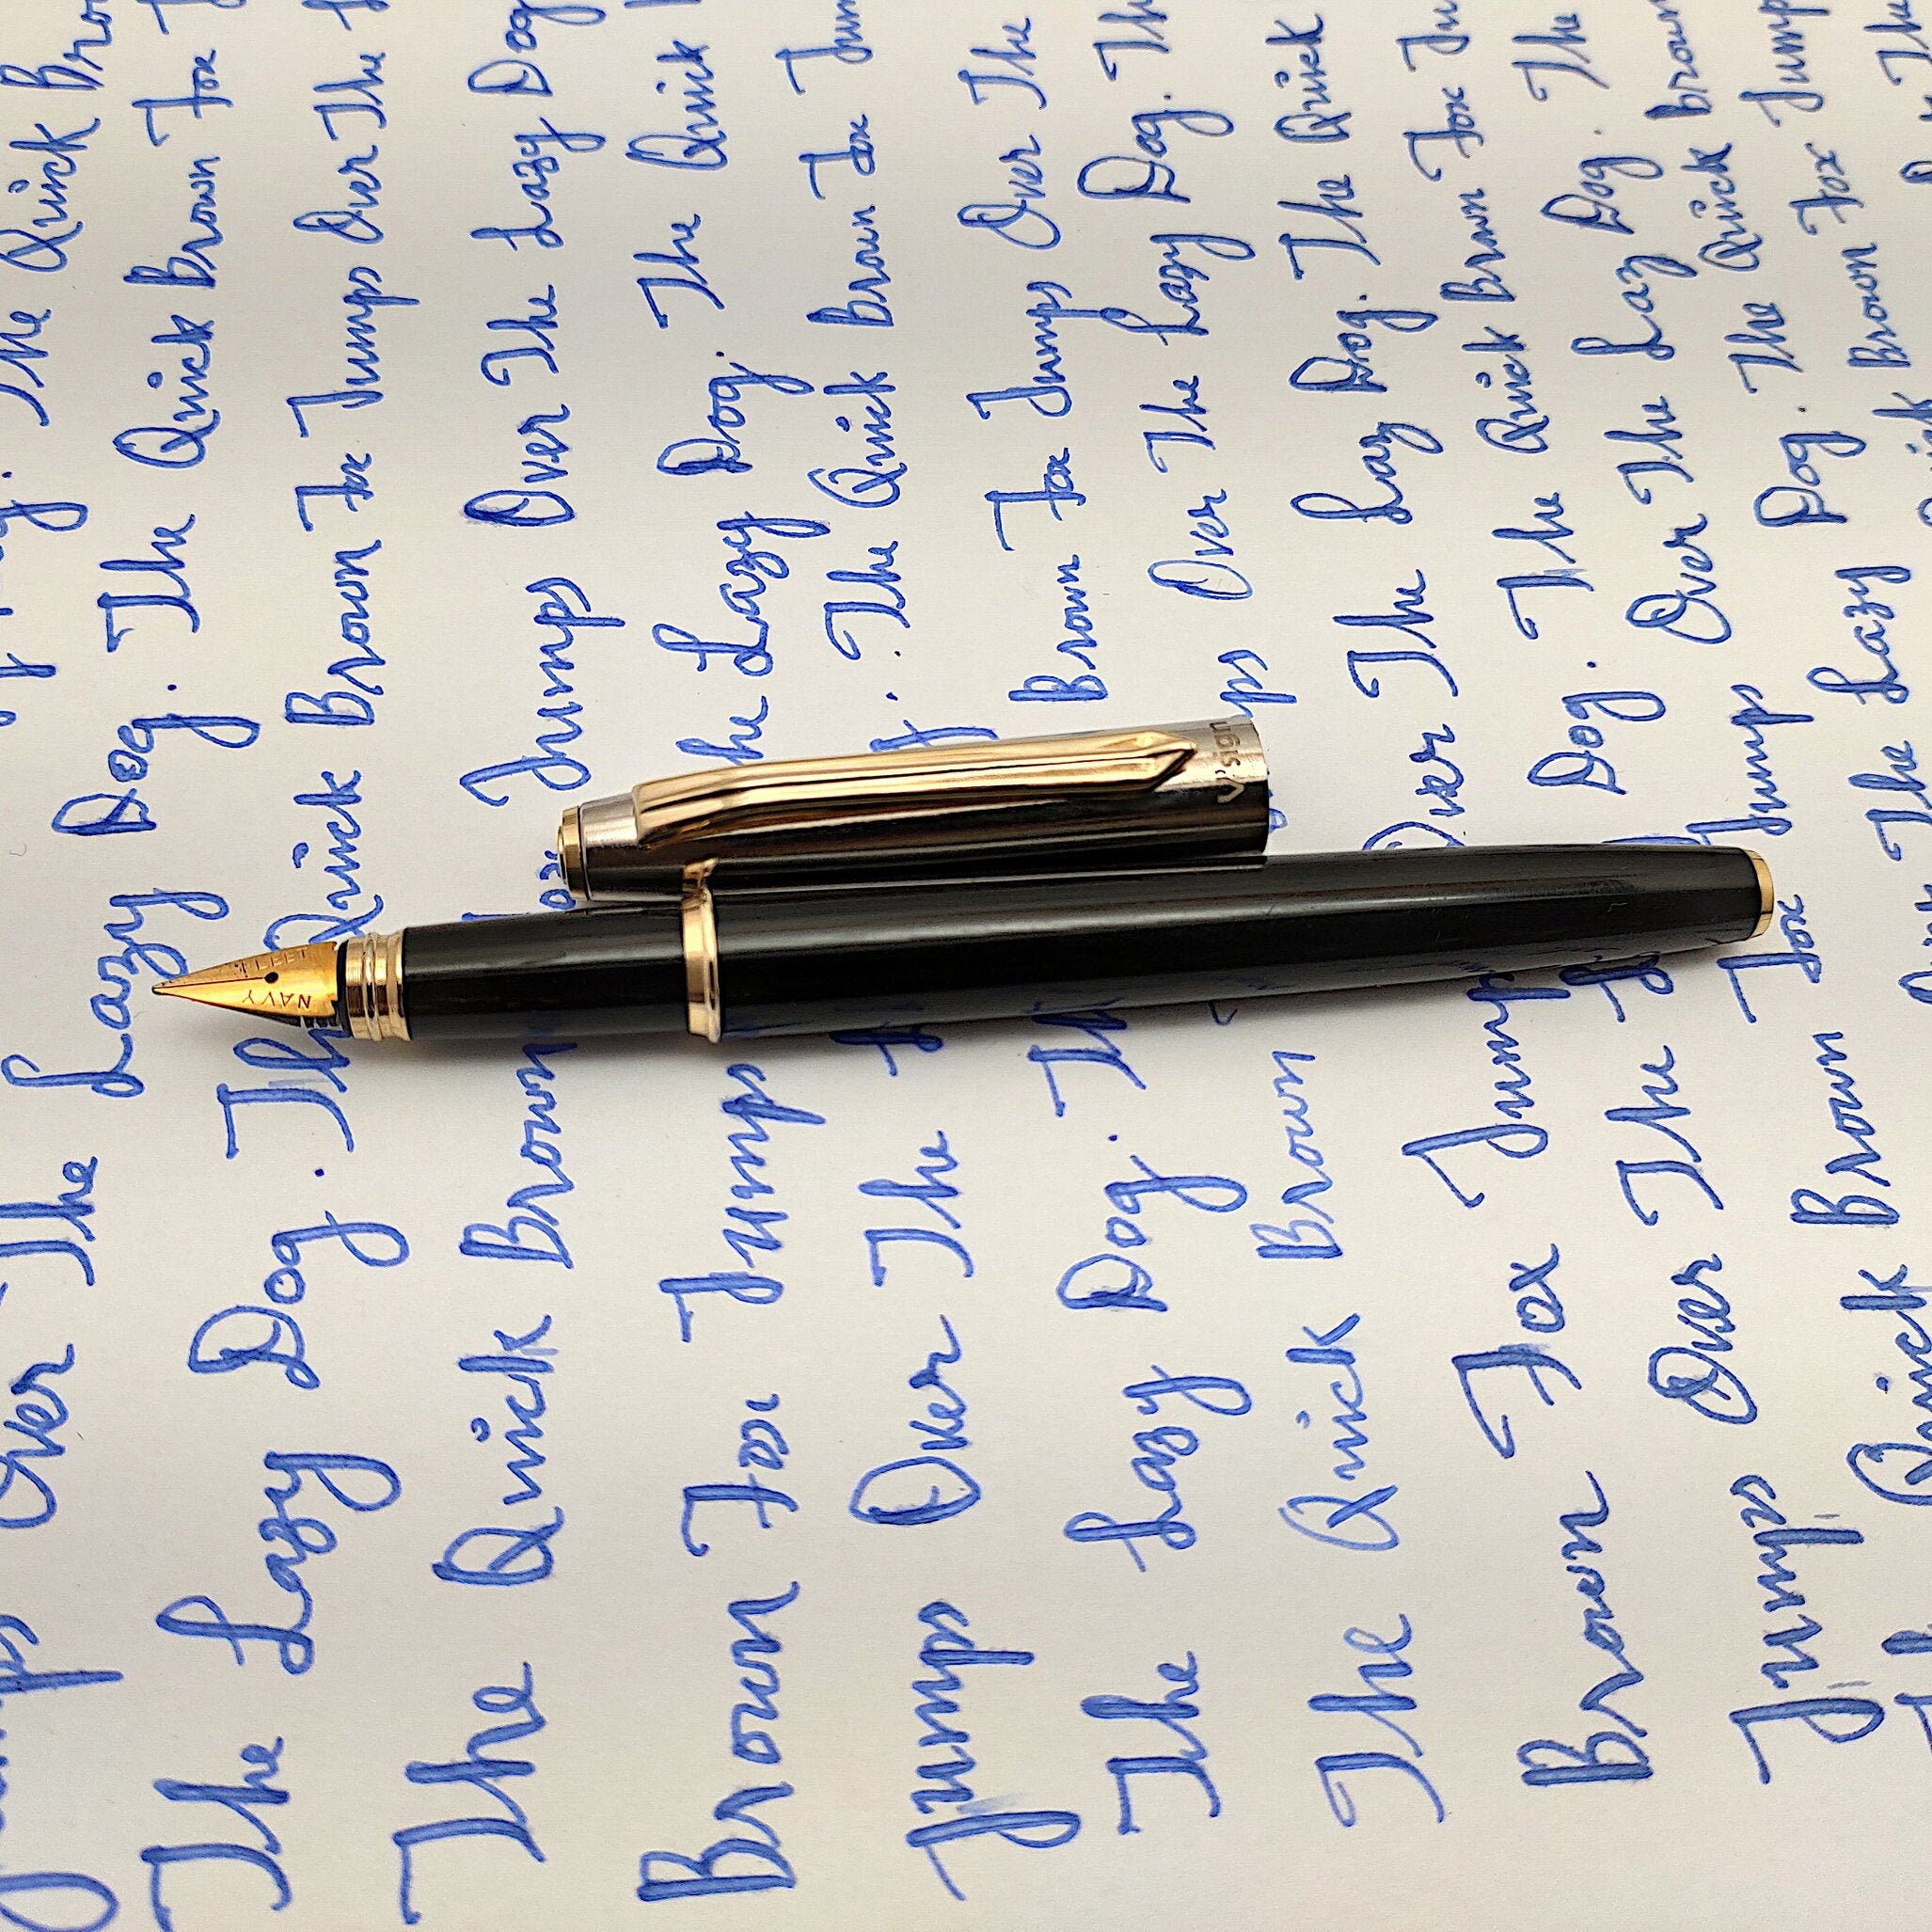 The Quick
Jumps Over The Lazy Dog. The Quick Brown Fox
The Lazy Dog. The Quick Brown Fox Jumps Over The
The Quick Brown Jumps Over The Lazy Dog
Brown Fox Jumps The Lazy Dog. The Quick
Jumps Over The The Quick Brown Fox Jum
The Lazy Dog. The Brown Fox Jumps Over The
The Quick Brown Over The Lazy Dog. The
Brown Fox Jumps Over The Lay Dog. The Quick
Jumps Over The Dog. The Quick Brown Fox Jum
The Quick Brown Fox Jumps Over The Lay Dog. The
The Lazy Dog. The Quick Brown
Brown Fox Jump
V'sign
NAVY